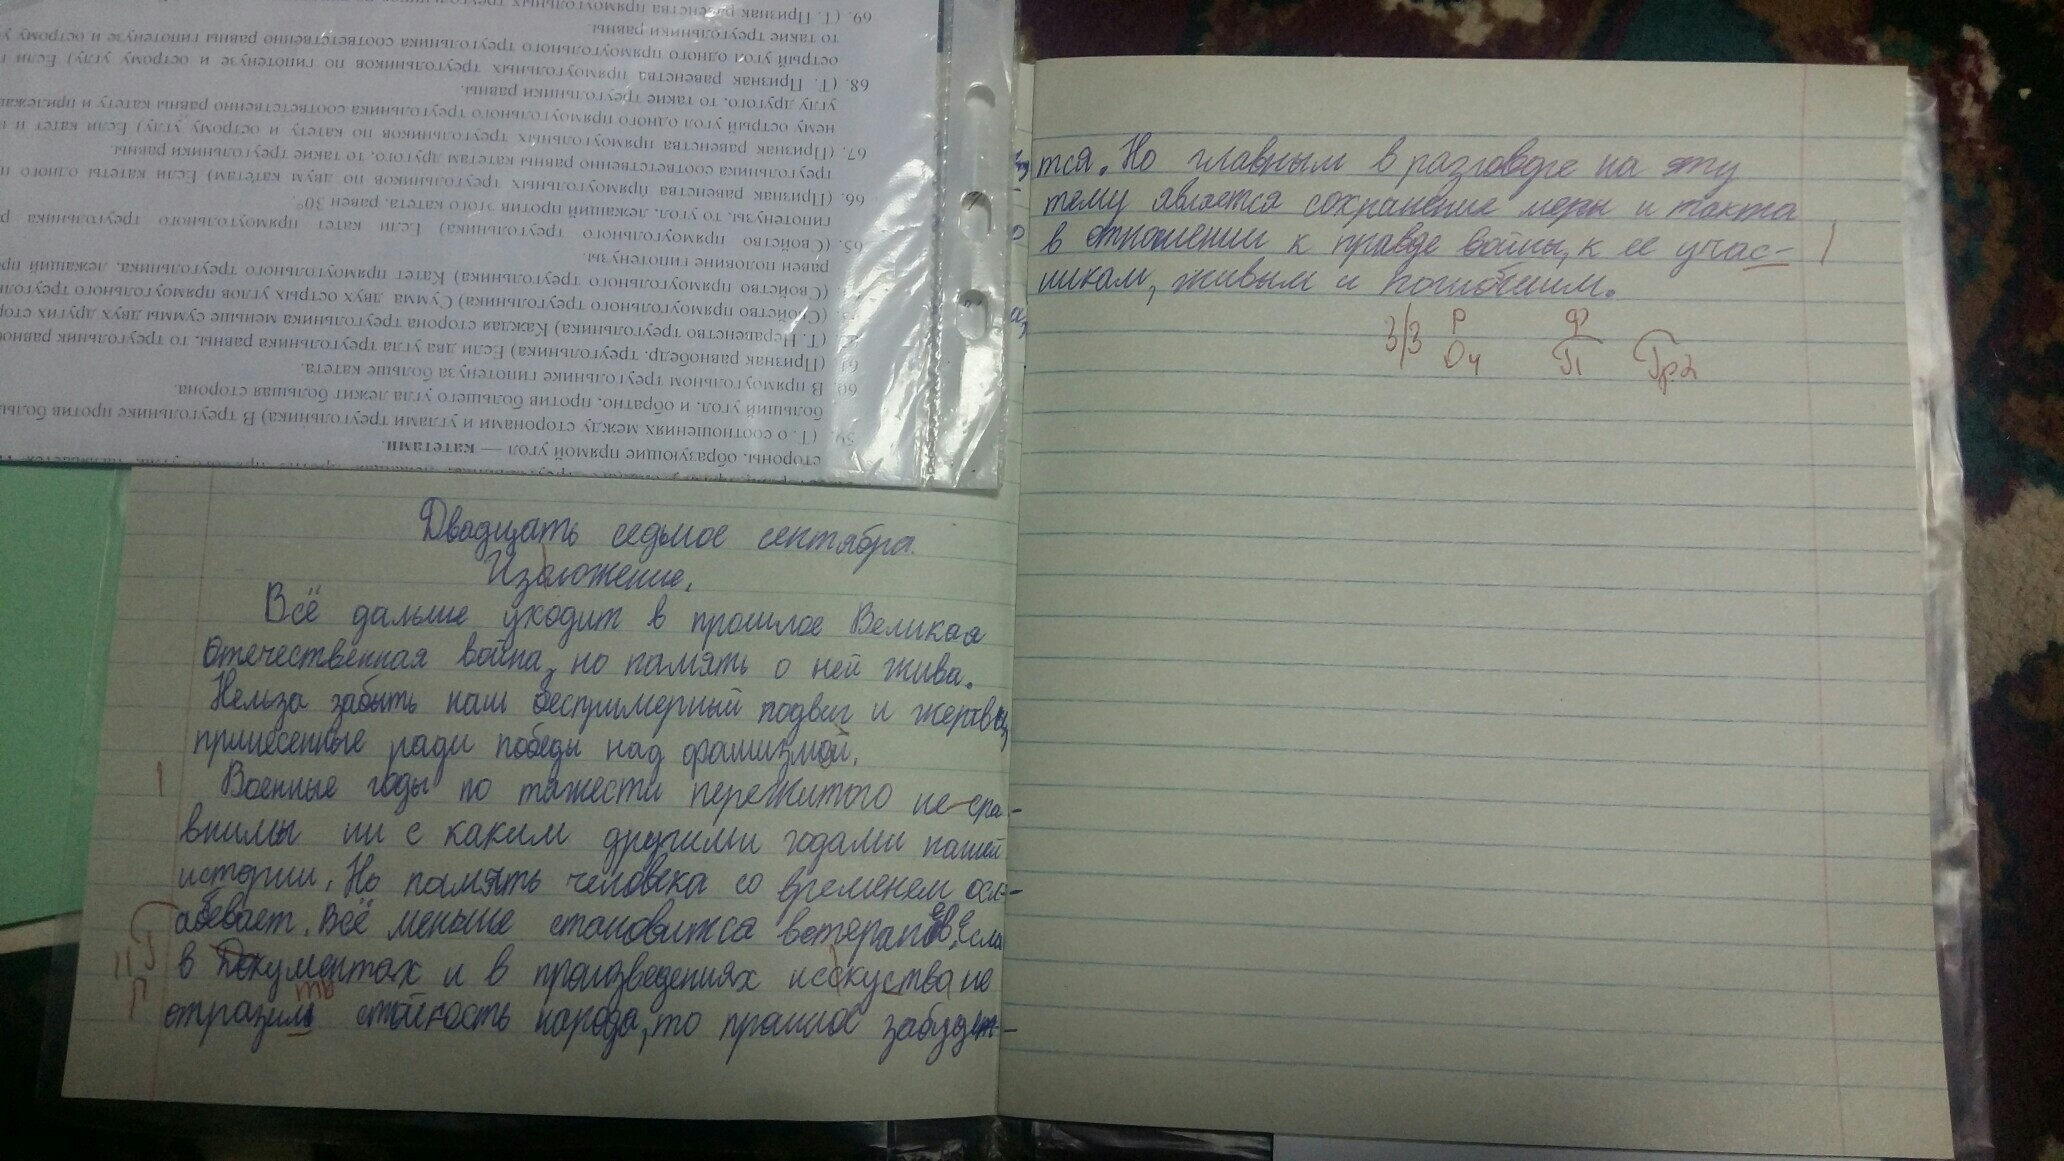 69. (Т. Признак равенства прямоугольных
то такие треугольники равны.
острый угол одного прямоугольного треугольника соответственно равны гипотенузе и острому
68. (Т. Признак равенства прямоугольных треугольников по гипотенузе и острому углу) Если
углу другого, то такие треугольники равны.
нему острый угол одного прямоугольного треугольника соответственно равны катету и прилежа
67. (Признак равенства прямоугольных треугольников по катету и острому углу) Если катет и
треугольника соответственно равны катетам другого, то такие треугольники равны.
66. (Признак равенства прямоугольных треугольников по двум катетам) Если катеты одного
гипотенузы, то угол, лежащий против этого катета, равен 30°.
65. (Свойство прямоугольного треугольника) Если катет прямоугольного треугольника
равен половине гипотенузы.
(Свойство прямоугольного треугольника) Катет прямоугольного треугольника, лежащий
(Свойство прямоугольного треугольника) Сумма двух острых углов прямоугольного
(Т. Неравенство треугольника) Каждая сторона треугольника меньше суммы двух других
61. (Признак равнобедр. треугольника) Если два угла треугольника равны, то треугольник
60. В прямоугольном треугольнике гипотенуза больше катета.
больший угол, и обратно, против большего угла лежит большая сторона.
59. (Т. о соотношениях между сторонами и углами треугольника) В треугольнике против
стороны, образующие прямой угол — катетами.
Двадцать седьмое сентября.
Изложение.
Всё дальше уходит в прошлое Великая
Отечественная война, но память о ней жива.
Нельза забыть наш беспримерный подвиг и жертвы,
принесенные ради победы над фашизмой.
Военные годы по тяжести пережитого не сра-
внимы ни с каким другими годами нашей
истории. Но память человека со временем осл-
абевает. Всё меньше становитса ветеранов. Если
в документах и в произведениях исскуства не
отразить стойкость народа, то прошлое забудет-
тся. Но главным в разговоре на эту
тему является сохранение меры и такта
в отношении к правде войны, к ее учас-
никам, живым и погибшим.
3/3 Р Ф
04 П Гр2